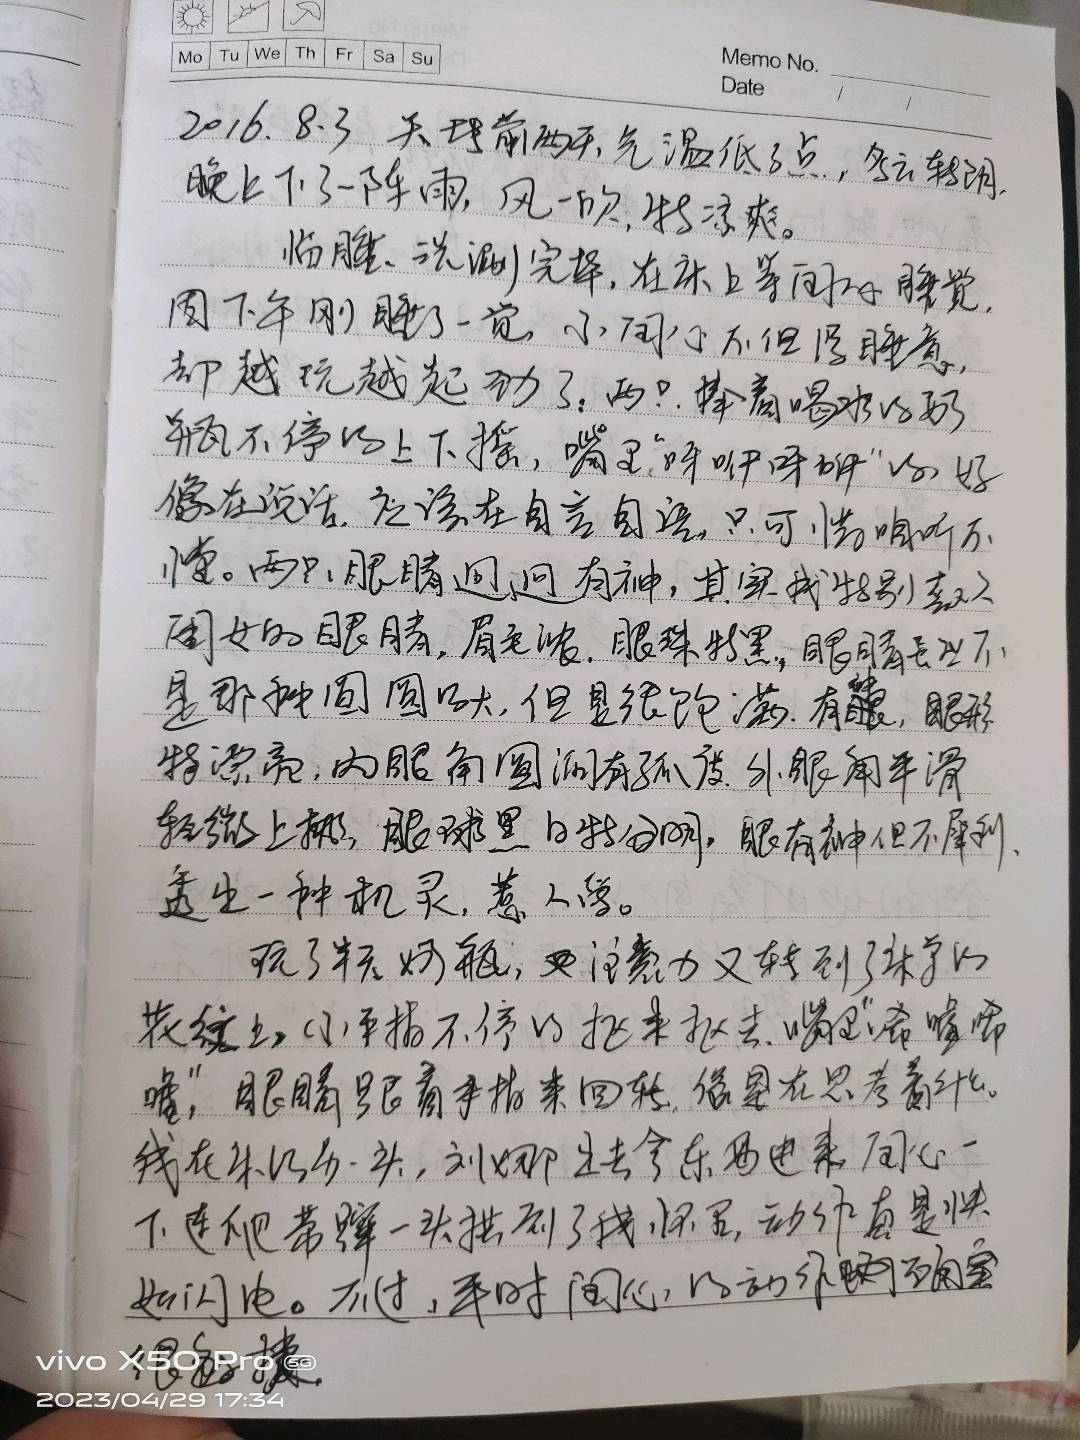 Mo Tu We Th Fr Sa Su
Memo No.
Date / /
2016.8.3 天 前两天, 气温低了点, 多云转阴.
晚上下了一阵雨, 风一吹, 特凉爽。
临睡, 洗漱完毕, 在床上等 睡觉.
因下午刚睡了一觉, 小 不但没睡意,
却越玩越起劲了; 两只 捧着喝水的奶
瓶不停的上下摇, 嘴里"呀咿呀咿"的, 好
像在说话, 应该在自言自语, 只可惜咱听不
懂。两只眼睛迥迥有神, 其实我特别喜欢
闺女的眼睛, 眉毛浓, 眼珠特黑, 眼睛长的不
是那种圆圆的大, 但是很饱满, 有神, 眼形
特漂亮, 内眼角圆润有弧度, 外眼角平滑
轻微上挑, 眼球黑白特分明, 眼有神但不犀利,
透出一种机灵, 惹人
玩了半天奶瓶, 注意力又转到了床单的
花纹上, 小手指不停的抠来抠去, 嘴里"唏嘘唏
嘘", 眼睛跟着手指来回转, 像是在思考着什么。
我在床的另一头, 刘娜出去拿东西进来, 一
下连爬带 一头拱到了我怀里, 动作真是快
如闪电。不过, 平时 的动作 确实
很
vivo X50 Pro 5G
2023/04/29 17:34